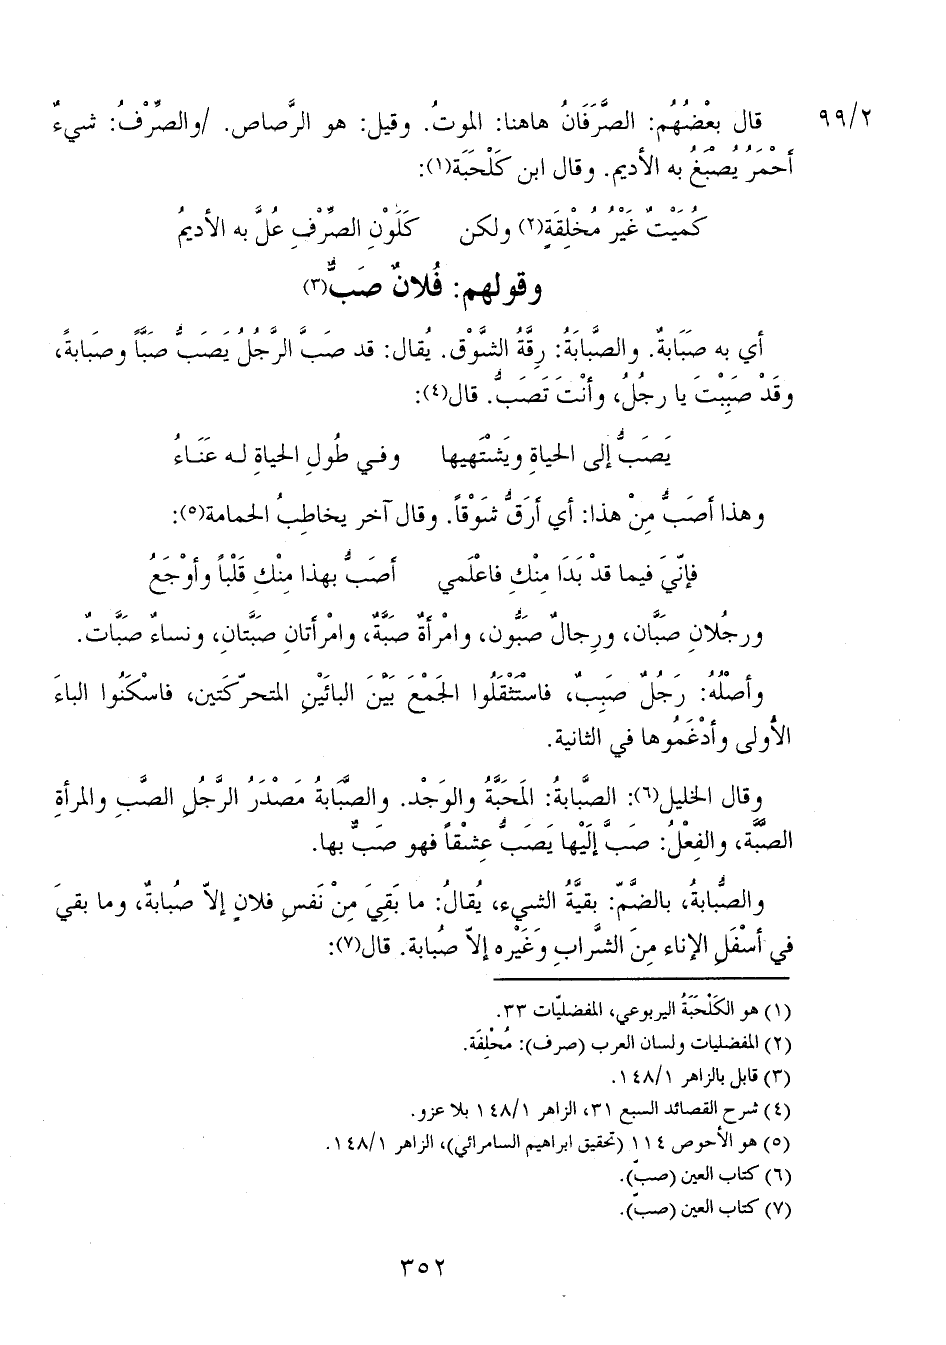 ٩٩/٢ قال بعْضُهُم: الصَّرَفَانُ هاهنا: الموتُ. وقيل: هو الرَّصاص. /والصِّرْفُ: شيءٌ
أحْمَرُ يُصْبَغُ به الأديم. وقال ابن كَلْحَبَة(١):
كُمَيْتٌ غَيْرُ مُخْلِفَةٍ(٢) ولكن كَلَوْنِ الصِّرْفِ عُلَّ به الأديمُ
وقولهم: فُلانٌ صَبٌّ(٣)
أي به صَبَابَةٌ. والصَّبابَةُ: رِقَّةُ الشَّوْق. يُقال: قد صَبَّ الرَّجُلُ يَصَبُّ صبّاً وصَبابةً،
وقَدْ صَبِبْتَ يا رجُلُ، وأنْتَ تَصَبُّ. قال(٤):
يَصَبُّ إلى الحياةِ ويَشْتَهيها وفي طُولِ الحياةِ له عَنَاءُ
وهذا أصَبُّ مِنْ هذا: أي أرَقُّ شَوْقاً. وقال آخر يخاطِبُ الحمامة(٥):
فإنّيَ فيما قدْ بَدَا مِنْكِ فاعْلَمي أصَبُّ بهذا مِنْكِ قَلْباً وأوْجَعُ
ورجُلان صَبَّان، ورِجالٌ صَبُّون، وامْرأةٌ صَبَّةٌ، وامْرأتانِ صَبَّتان، ونساءٌ صَبَّاتٌ.
وأصْلُهُ: رَجُلٌ صَبِبٌ، فاستَثْقَلُوا الجَمْعَ بَيْنَ البائَيْنِ المتحرّكَتين، فاسْكَنُوا الباءَ
الأُولى وأدْغَمُوها في الثانية.
وقال الخليل(٦): الصَّبابةُ: المَحَبَّةُ والوَجْد. والصَّبابةُ مَصْدَرُ الرَّجُلِ الصَّبِ والمرأةِ
الصَّبَّة، والفِعْلُ: صَبَّ إلَيْها يَصَبُّ عِشْقاً فهو صَبٌّ بها.
والصُّبابةُ، بالضمّ: بقيَّةُ الشيء، يُقالُ: ما بَقيَ مِنْ نَفسِ فلانٍ إلاّ صُبابةٌ، وما بقيَ
في أسْفَلِ الإناء مِنَ الشَّرابِ وغَيْرِه إلاّ صُبابة. قال(٧):
(١) هو الكَلْحَبَةُ اليربوعي، المفضليّات ٣٣.
(٢) المفضليات ولسان العرب (صرف): مُحْلِفَة.
(٣) قابل بالزاهر ١٤٨/١.
(٤) شرح القصائد السبع ٣١، الزاهر ١٤٨/١ بلا عزو.
(٥) هو الأحوص ١١٤ (تحقيق ابراهيم السامرائي)، الزاهر ١٤٨/١.
(٦) كتاب العين (صبّ).
(٧) كتاب العين (صبّ).
٣٥٢